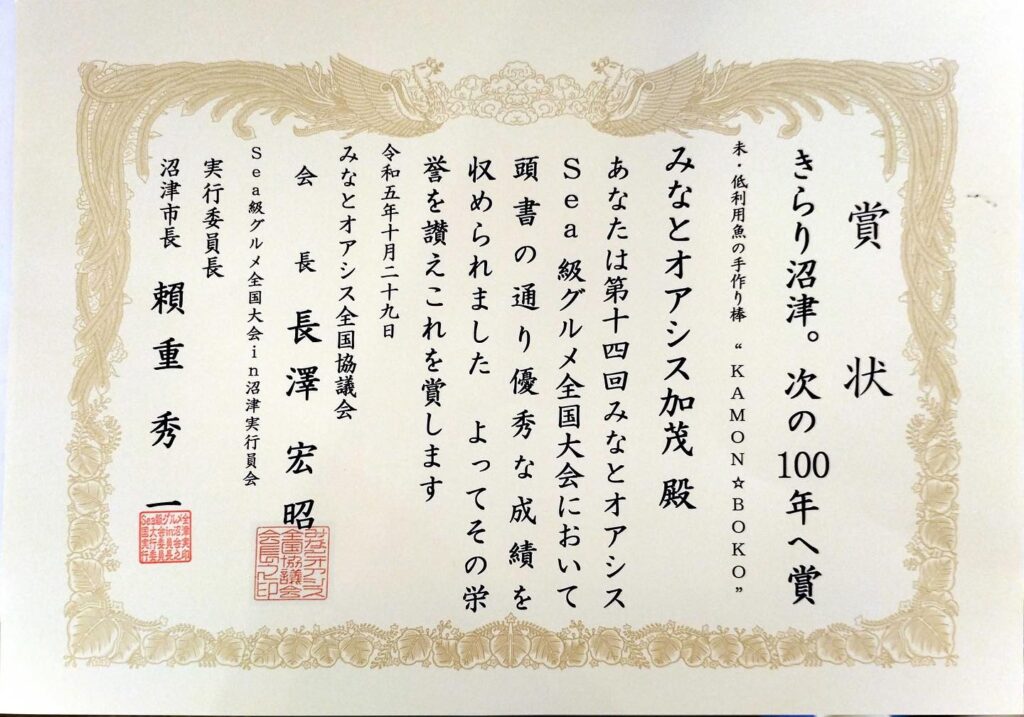 賞状
きらり沼津。次の100年へ賞
未・低利用魚の手作り棒“KAMON☆BOKO”
みなとオアシス加茂 殿
あなたは第十四回みなとオアシス
Sea級グルメ全国大会において
頭書の通り優秀な成績を
収められました よってその栄
誉を讃えこれを賞します
令和五年十月二十九日
みなとオアシス全国協議会
会長 長澤宏昭
Sea級グルメ全国大会in沼津実行員会
実行委員長
沼津市長 頼重秀一
みなとオアシス
全国協議会
会長之印